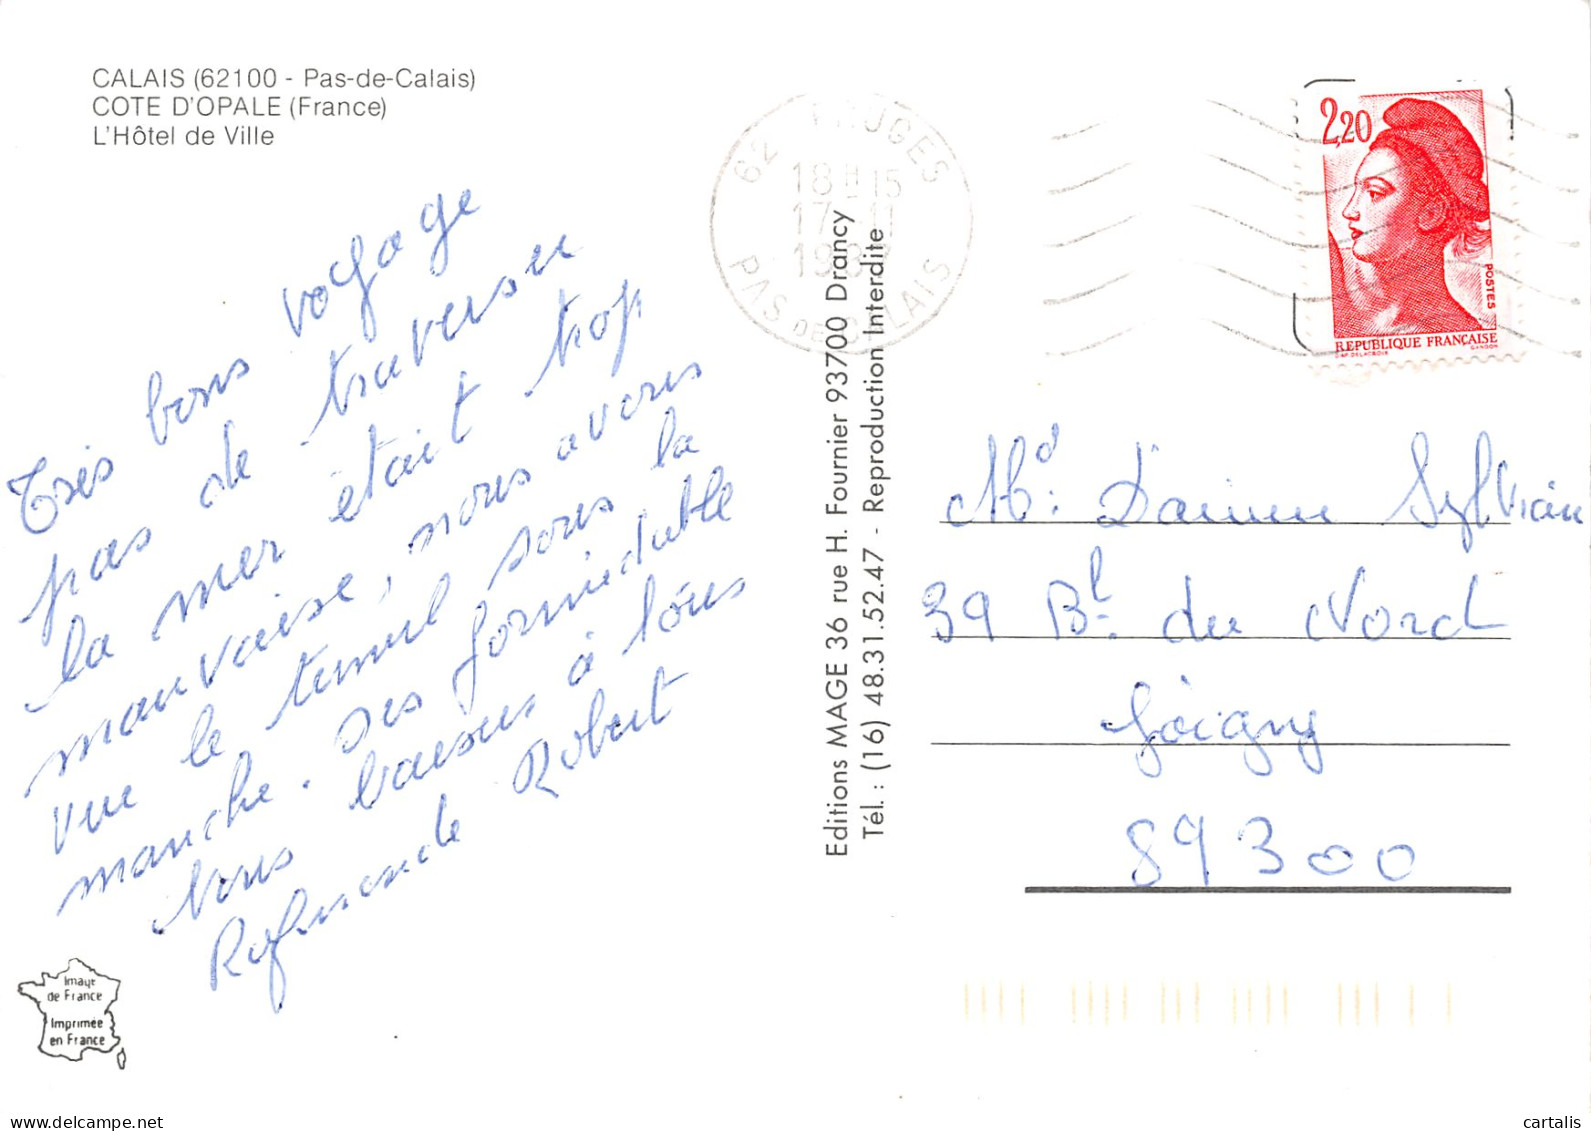 CALAIS (62100 - Pas-de-Calais)
COTE D'OPALE (France)
L'Hôtel de Ville
Très bons voyage
pas de traversu
la mer était trop
mauvaise, nous avons
vue le tunnel sous la
manche. Des formidable
bous baisers à tous
Robert
Image
de France
Imprimée
en France
Editions MAGE 36 rue H. Fournier 93700 Drancy
Tél. : (16) 48.31.52.47 - Reproduction Interdite
62 FRUGES
18H15
17 - 11
1987
PAS DE CALAIS
2,20
POSTES
REPUBLIQUE FRANÇAISE
D'AP. DELACROIX GANDON
Md. Sylvian
39 Bl. du Nord
Joigny
89300
delcampe.net
cartalis